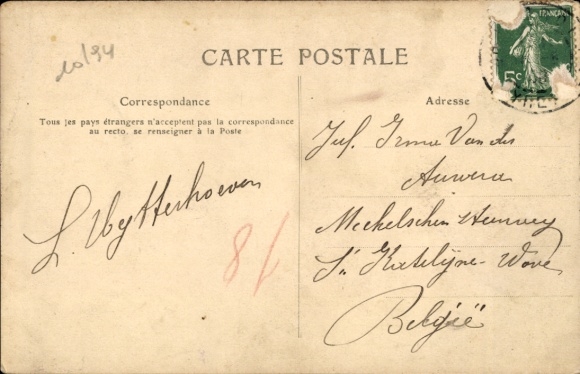 10/94
CARTE POSTALE
Correspondance
Tous les pays étrangers n'acceptent pas la correspondance
au recto, se renseigner à la Poste
L. Uytterhoeven
8/
Adresse
FRANÇAISE
5c
Juf. Irma Van der
Auwera
Mechelschen
St. Katelijne-Wave
België